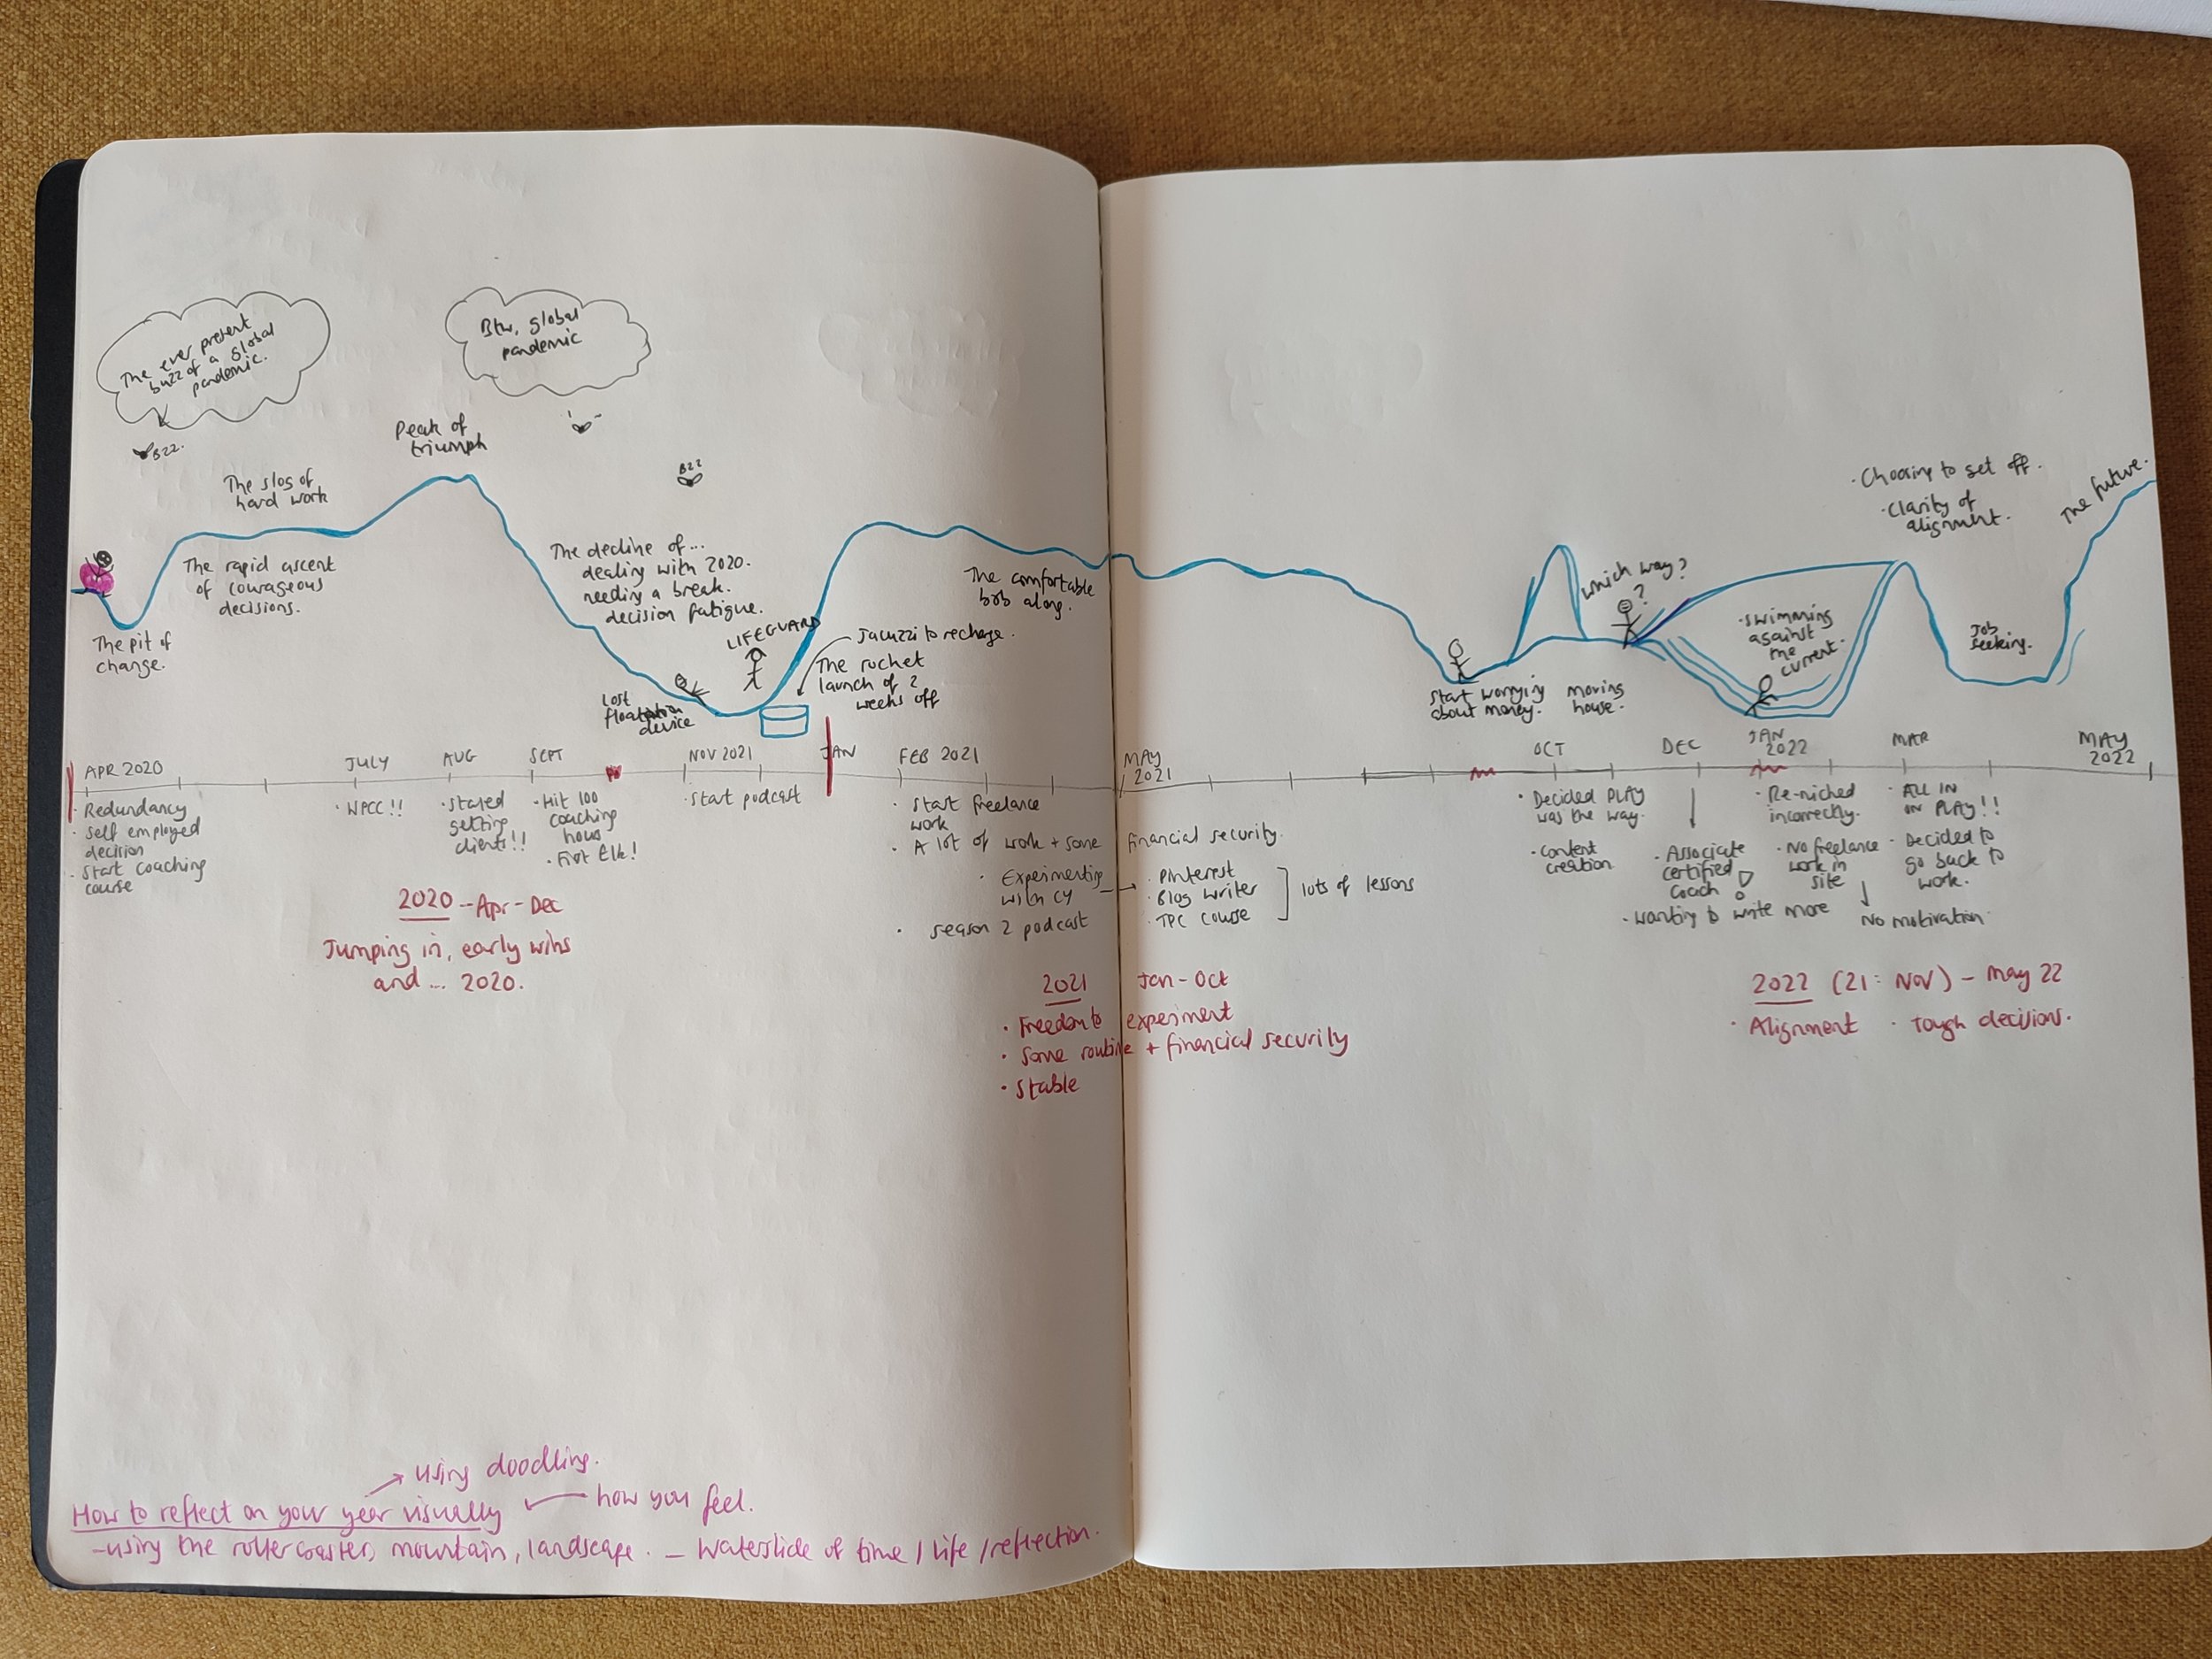 The ever present
buzz of a global
pandemic.
Bzz.
Btw, global
pandemic
Bzz
Peak of
triumph
The slog of
hard work
The rapid ascent
of courageous
decisions.
The pit of
change.
The decline of...
dealing with 2020.
needing a break.
decision fatigue.
LIFEGUARD
Jacuzzi to recharge.
The rocket
launch of 2
weeks off
Lost
device
The comfortable
bob along.
Start worrying
about money.
moving
house.
Which way?
?
swimming
against
the
current.
Choosing to set off.
Clarity of
alignment.
Job
seeking.
The future.
APR 2020
JULY
AUG
SEPT
NOV 2021
JAN
FEB 2021
MAY
2021
OCT
DEC
JAN
2022
MAR
MAY
2022
· Redundancy
· Self employed
decision
· Start coaching
course
· NPCC!!
· Started
getting
clients!!
· Hit 100
coaching
hours
· First Elk!
· Start podcast
· Start freelance
work
· A lot of work + some financial security.
· Experimenting
with CY
· Pinterest
· Blog Writer
· TPC Course
lots of lessons
· Season 2 podcast
· Decided PLAY
was the way.
· Content
creation
· Associate
certified
coach
· Wanting to write more
· Re-niched
incorrectly.
· No freelance
work in
site
No motivation
· ALL IN
ON PLAY!!
· Decided to
go back to
work.
2020 - Apr - Dec
Jumping in, early wins
and ... 2020.
2021 Jan - Oct
· Freedom to experiment
· Some routine + financial security
· Stable
2022 (21: Nov) - May 22
· Alignment · Tough decisions.
using doodling.
How to reflect on your year visually
how you feel.
- using the rollercoaster, mountain, landscape. - Waterslide of time / Life / reflection.